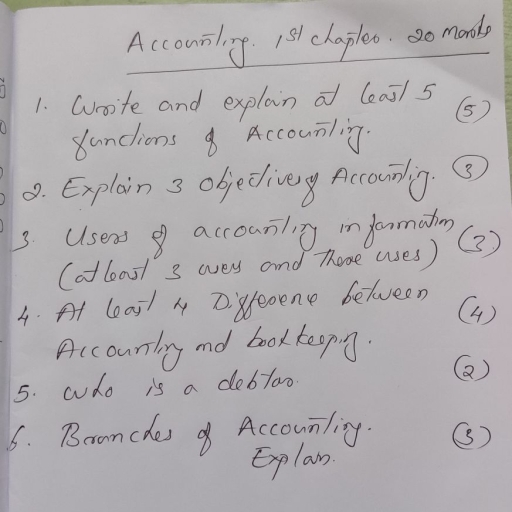 Accounting. 1st chapter. 20 marks
1. Write and explain at least 5 (5)
functions of Accounting.
2. Explain 3 objectives of Accounting. (3)
3. Users of accounting information (3)
(at least 3 users and there uses)
4. At least 4 Difference between (4)
Accounting and bookkeeping.
5. who is a debtor. (2)
6. Branches of Accounting. (3)
Explain.